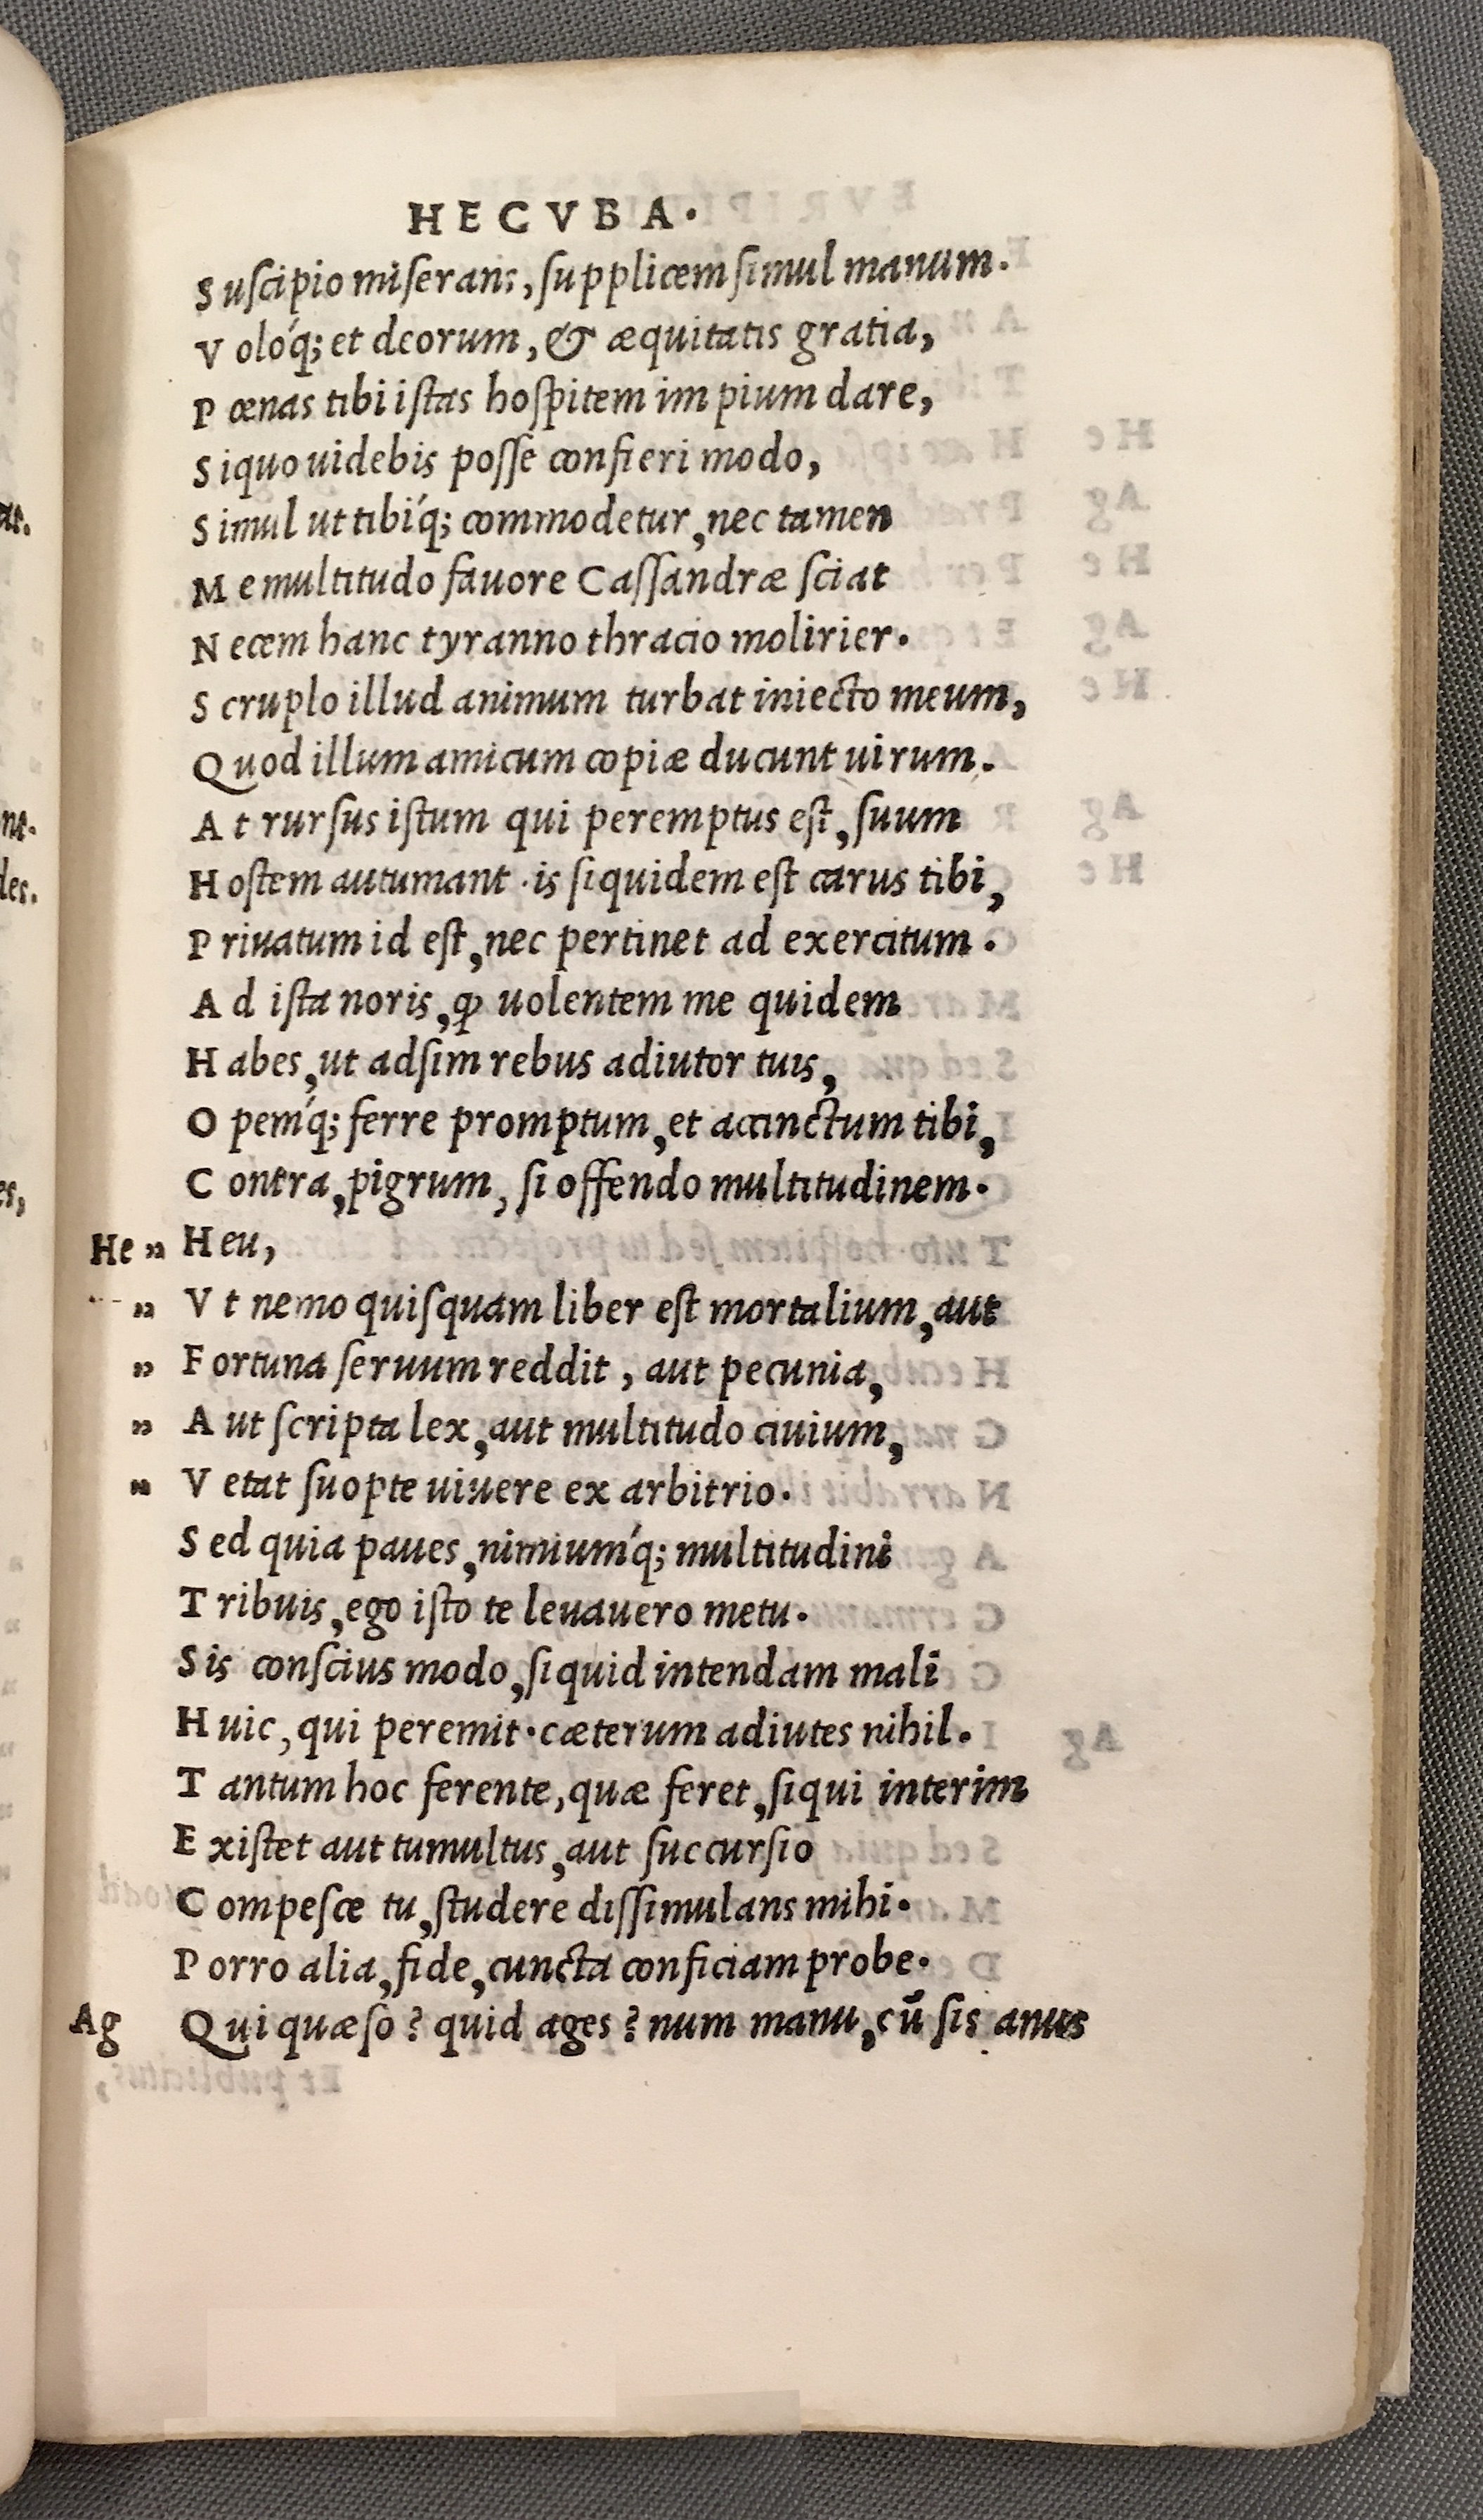 HECVBA.
Suscipio miserans, supplicem simul manum.
Voloq́; et deorum, & æquitatis gratia,
Pœnas tibi istas hospitem impium dare,
Siquo uidebis posse confieri modo,
Simul ut tibiq́; commodetur, nec tamen
Me multitudo fauore Cassandræ sciat
Necem hanc tyranno thracio molirier.
Scruplo illud animum turbat iniecto meum,
Quod illum amicum copiæ ducunt uirum.
At rursus istum qui peremptus est, suum
Hostem autumant. is siquidem est carus tibi,
Priuatum id est, nec pertinet ad exercitum.
Ad ista noris, ꝙ uolentem me quidem
Habes, ut adsim rebus adiutor tuis,
Opemq́; ferre promptum, et accinctum tibi,
Contra, pigrum, si offendo multitudinem.
He ,, Heu,
,, Vt nemo quisquam liber est mortalium, aut
,, Fortuna seruum reddit, aut pecunia,
,, Aut scripta lex, aut multitudo ciuium,
,, Vetat suopte uiuere ex arbitrio.
Sed quia paues, nimiumq́; multitudini
Tribuis, ego isto te leuauero metu.
Sis conscius modo, siquid intendam mali
Huic, qui peremit. cæterum adiutes nihil.
Tantum hoc ferente, quæ feret, siqui interim
Existet aut tumultus, aut succursio
Compesce tu, studere dissimulans mihi.
Porro alia, fide, cuncta conficiam probe.
Ag Qui quæso? quid ages? num manu, cū sis anus